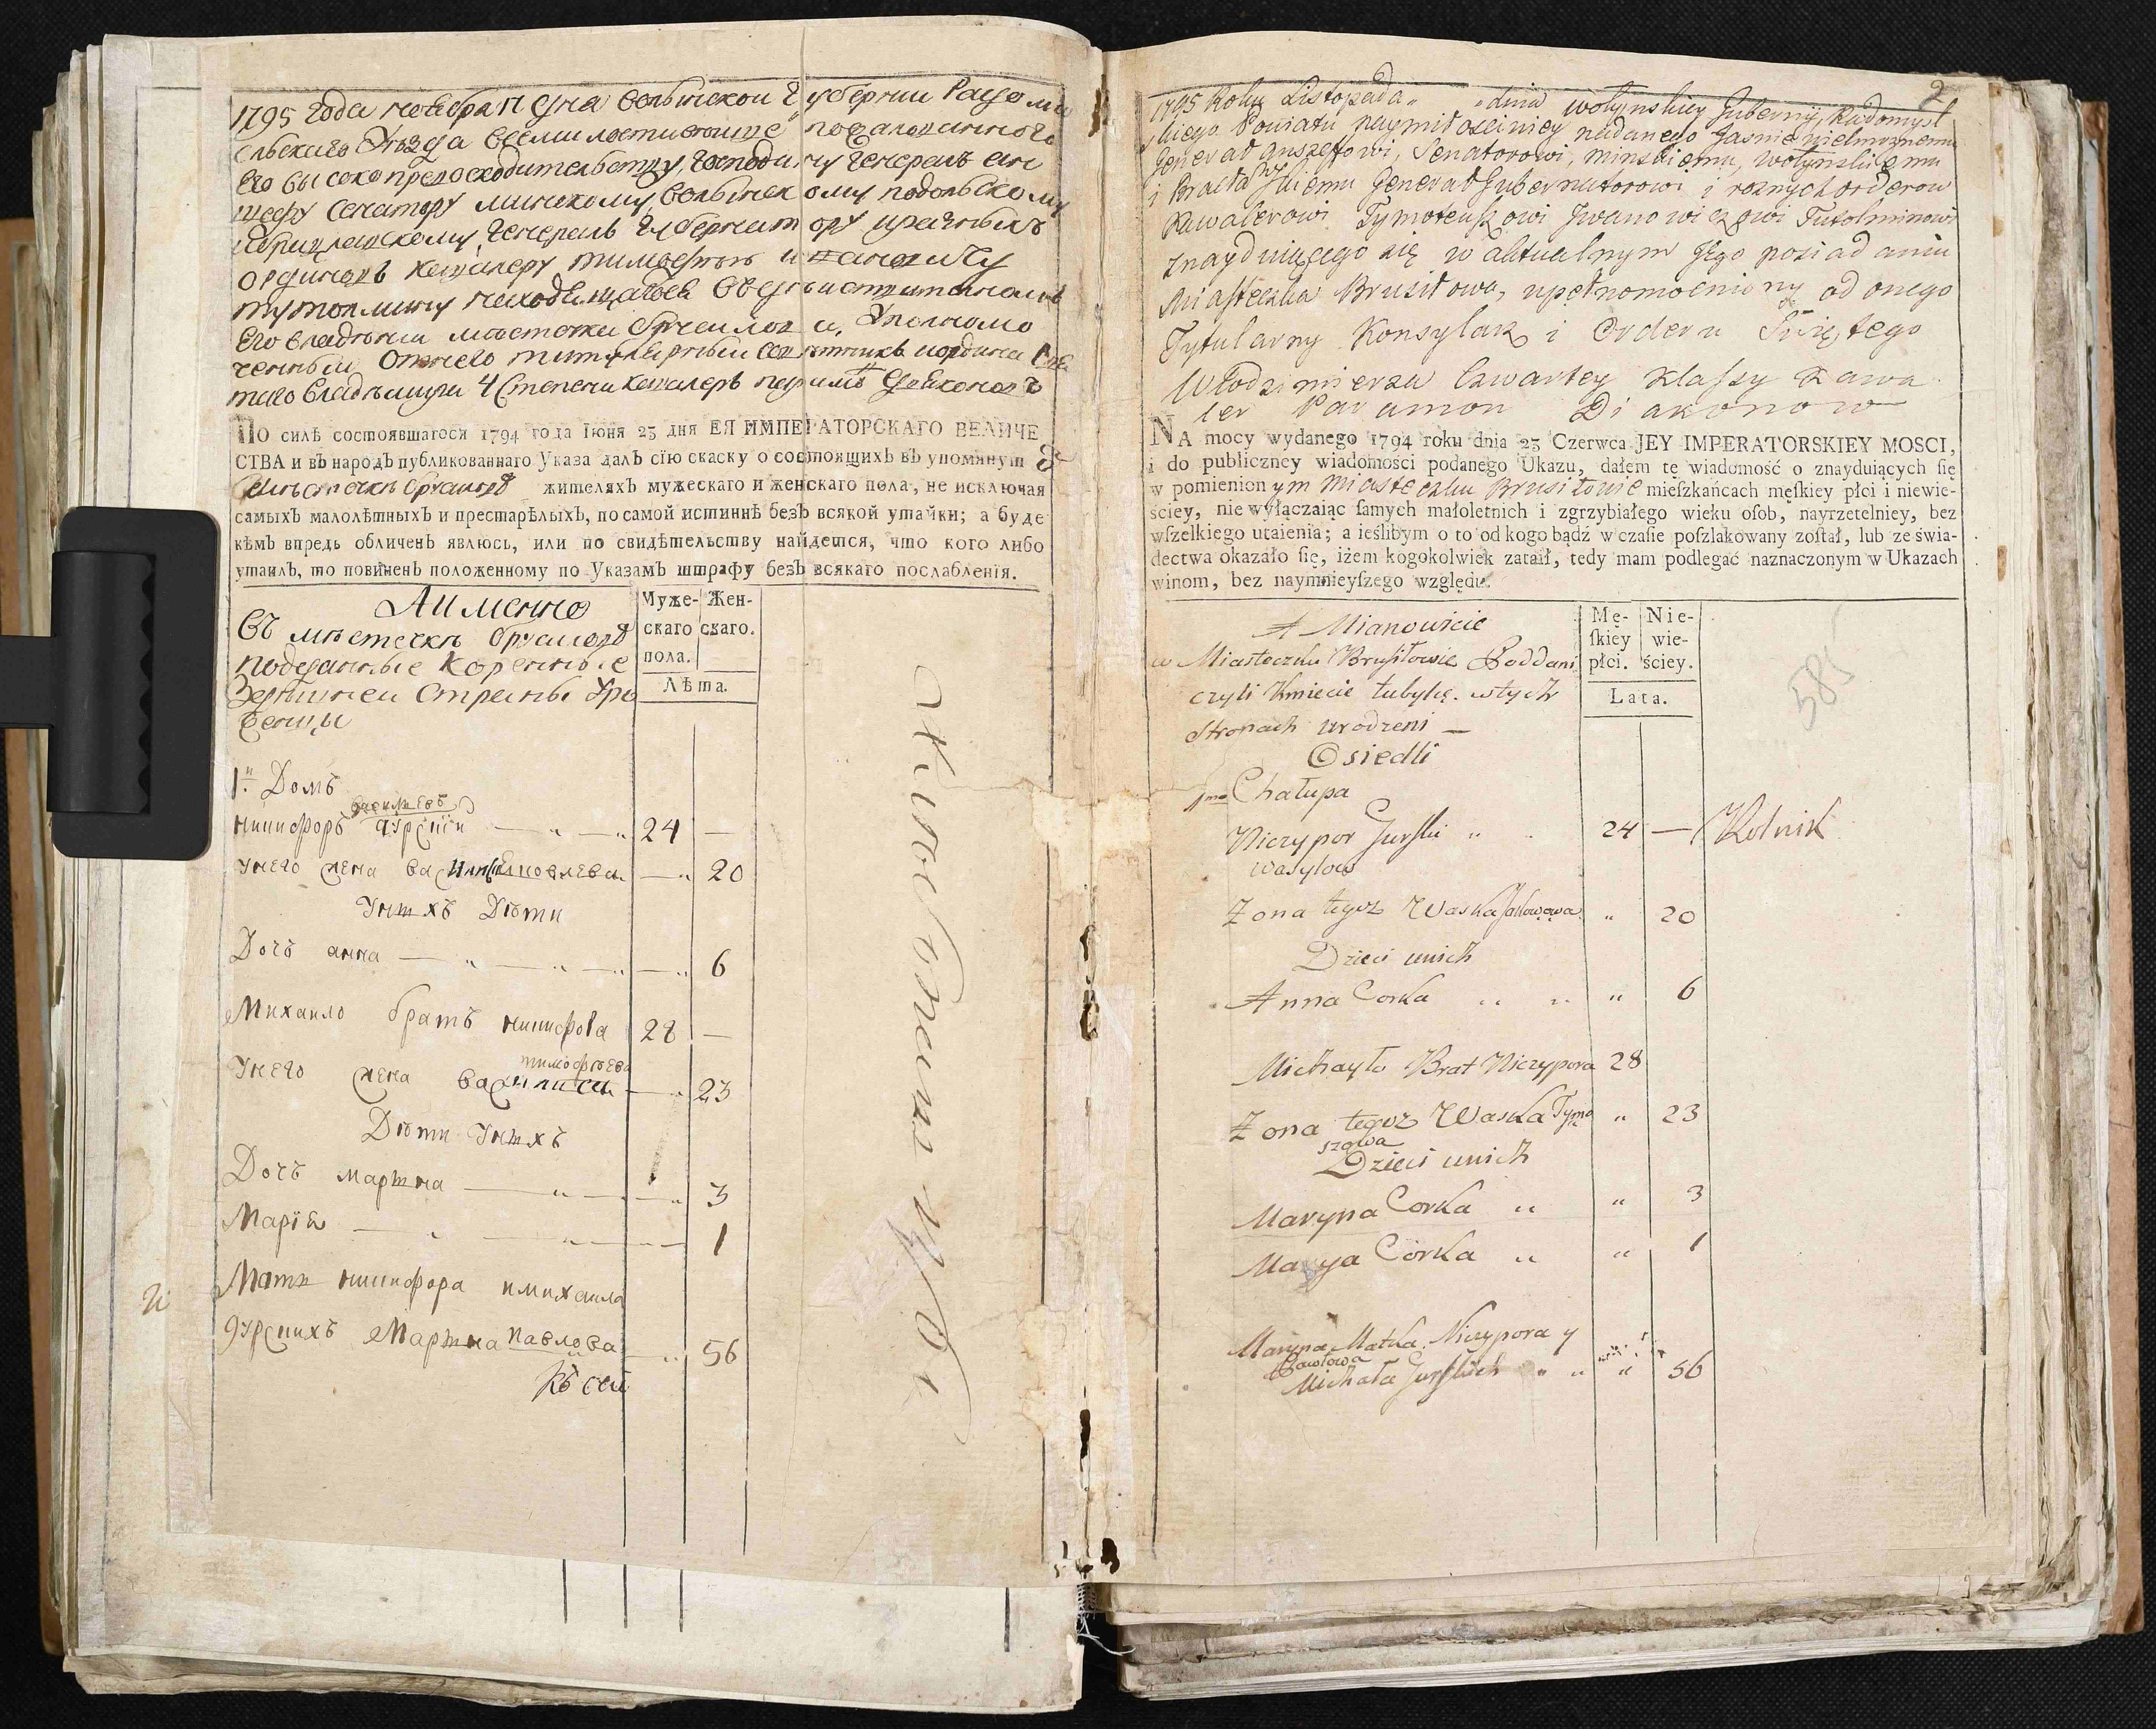 1795 Года ноября дня Волынской Губернии Радомы
сльскаго Уѣзда всемилостивейше пожалованного
Его высокопревосходительству, Господину Генералъ ан
шефу Сенатору минскому, волынскому подольскому
и брацлавскому Генералъ Губернатору и разныхъ
ординовъ кавалеру тимофею ивановичу
тутолмину находящагося въ
его владѣнии мѣстечка Брусилова, Уполномо
ченный Отнего титулярный советникъ и ордина Свя
таго Владимира 4 степени кавалеръ парамонъ Дьяконовъ
ПО силѣ состоявшагося 1794 года Іюня 23 дня ЕЯ ИМПЕРАТОРСКАГО ВЕЛИЧЕ
СТВА и въ народъ публикованнаго Указа далъ сїю скаску о состоящихъ въ упомянутѡ
мѣстечкѣ Брусиловѣ жителяхъ мужескаго и женскаго пола, не исключая
самыхъ малолѣтныхъ и престарѣлыхъ, по самой истиннѣ безъ всякой утайки; а буде
кѣмъ впредь обличенъ явлюсь, или по свидѣтельству найдется, что кого либо
утаилъ, то повиненъ положенному по Указамъ штрафу безъ всякаго послабленїя.
А имянно
Въ мѣстечкѣ Брусиловѣ
подданные коренные
Здѣшней Страны Уро
женцы
Муже-
скаго
пола.
Жен-
скаго.
Лѣта.
1й Домъ
васильевъ
никифоръ гурскїи 24 —
Унего жена Васка Яковлева — 20
Унихъ Дѣти
Дочь анна — 6
Михаило братъ никифора 28 —
тимофѣева
Унего жена василиса — 23
Дѣти Унихъ
Дочь марина — 3
Марїя — 1
Мати никифора и михаила
гурскихъ Марина павлова 56
Къ сей
2
1795 Roku Listopada „ „ dnia wołynskiey Gubernij, Radomysl
skiego Powiatu naymiłościwiey nadanego Jasnie wielmoznemu
Generał anszefowi, Senatorowi, minskiemu, wołynskiemu
i Bracławskiemu Generał Gubernatorowi i roznych orderow
Kawalerowi Tymoteuszowi Jwanowiczowi Tutolminowi
znayduiącego się w aktualnym Jego posiadaniu
Miasteczka Brusiłowa, upełnomocniony od onego
Tytularny Konsylarz i Orderu Swiętego
Włodzimierza Czwartey Klassy Kawa
ler Paramon Diakonow
NA mocy wydanego 1794 roku dnia 23 Czerwca JEY IMPERATORSKIEY MOSCI,
i do publiczney wiadomości podanego Ukazu, dałem tę wiadomość o znayduiących się
w pomienionym Miasteczku Brusiłowie mieſzkańcach męſkiey płci i niewie-
ściey, nie wyłączaiąc ſamych małoletnich i zgrzybiałego wieku oſob, nayrzetelniey, bez
wſzelkiego utaienia; a ieślibym o to od kogo bądź w czaſie poſzlakowany zoſtał, lub ze świa-
dectwa okazało ſię, iżem kogokolwiek zataił, tedy mam podlegać naznaczonym w Ukazach
winom, bez naymnieyſzego względu.
A Mianowicie
w Miasteczku Brusiłowie Poddani
czyli Kmiecie tubylcę. wtych
Stronach urodzeni —
Osiedli
Mę-
ſkiey
płci.
Nie-
wie-
ściey.
Lata.
585
1mo Chałupa
Niczypor Gurski „ 24 — Rolnik
wasylow
Zona tegoz Waska Jakowowa „ 20
Dzieci unich
Anna Corka „ „ „ 6
Michayło Brat Niczypora 28
Zona tegoz Waska Tymo „ 23
szowa
Dzieci unich
Maryna Corka „ „ 3
Marya Córka „ „ 1
Maryna Matka Niczypora y
Pawłowa
Michała Gurskich „ „ „ 56